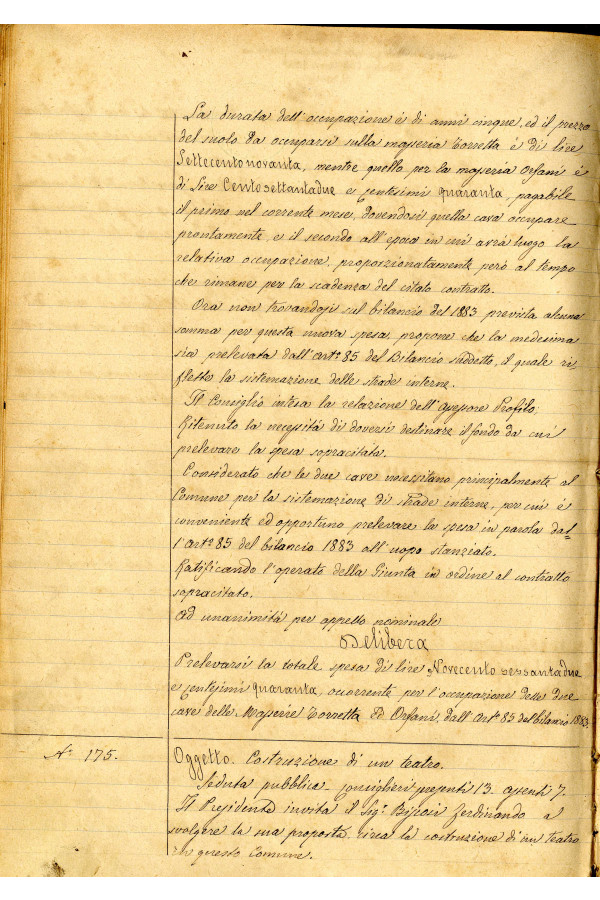 La durata dell'occupazione è di anni cinque, ed il prezzo
del suolo da occuparsi sulla masseria Torretta è di lire
Settecentonovanta, mentre quello per la masseria Orfani è
di Lire Centosettantadue e centesimi quaranta, pagabile
il primo nel corrente mese, dovendosi quella cava occupare
prontamente, e il secondo all'epoca in cui avrà luogo la
relativa occupazione, proporzionatamente però al tempo
che rimane per la scadenza del citato contratto.
Ora non trovandosi sul bilancio del 1883 prevista alcuna
somma per questa nuova spesa, propone che la medesima
sia prelevata dall'art.º 85 del Bilancio suddetto, il quale ri-
flette la sistemazione delle strade interne.
Il Consiglio intesa la relazione dell'Assessore Profilo;
Ritenuto la necessità di doversi destinare il fondo da cui
prelevare la spesa sopracitata.
Considerato che le due cave necessitano principalmente al
Comune per la sistemazione di strade interne, per cui è
conveniente ed opportuno prelevare la spesa in parola dal-
l'art.º 85 del bilancio 1883 all'uopo stanziato.
Ratificando l'operato della Giunta in ordine al contratto
sopracitato.
Ad unanimità per appello nominale
Delibera
Prelevarsi la totale spesa di lire Novecento sessantadue
e centesimi quaranta, occorrente per l'occupazione delle due
cave delle Masserie Torretta ed Orfani, dall'art.º 85 del bilancio 1883
Nº 175.
Oggetto. Costruzione di un teatro.
Seduta pubblica - Consiglieri presenti 13 assenti 7.
Il Presidente invita il Sig.r Ferdinando a
svolgere la sua proposta circa la costruzione di un teatro
in questo Comune.